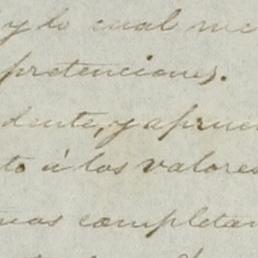 y lo cual me
pretenciones.
dente, y aprue
to á los valores
mas completam